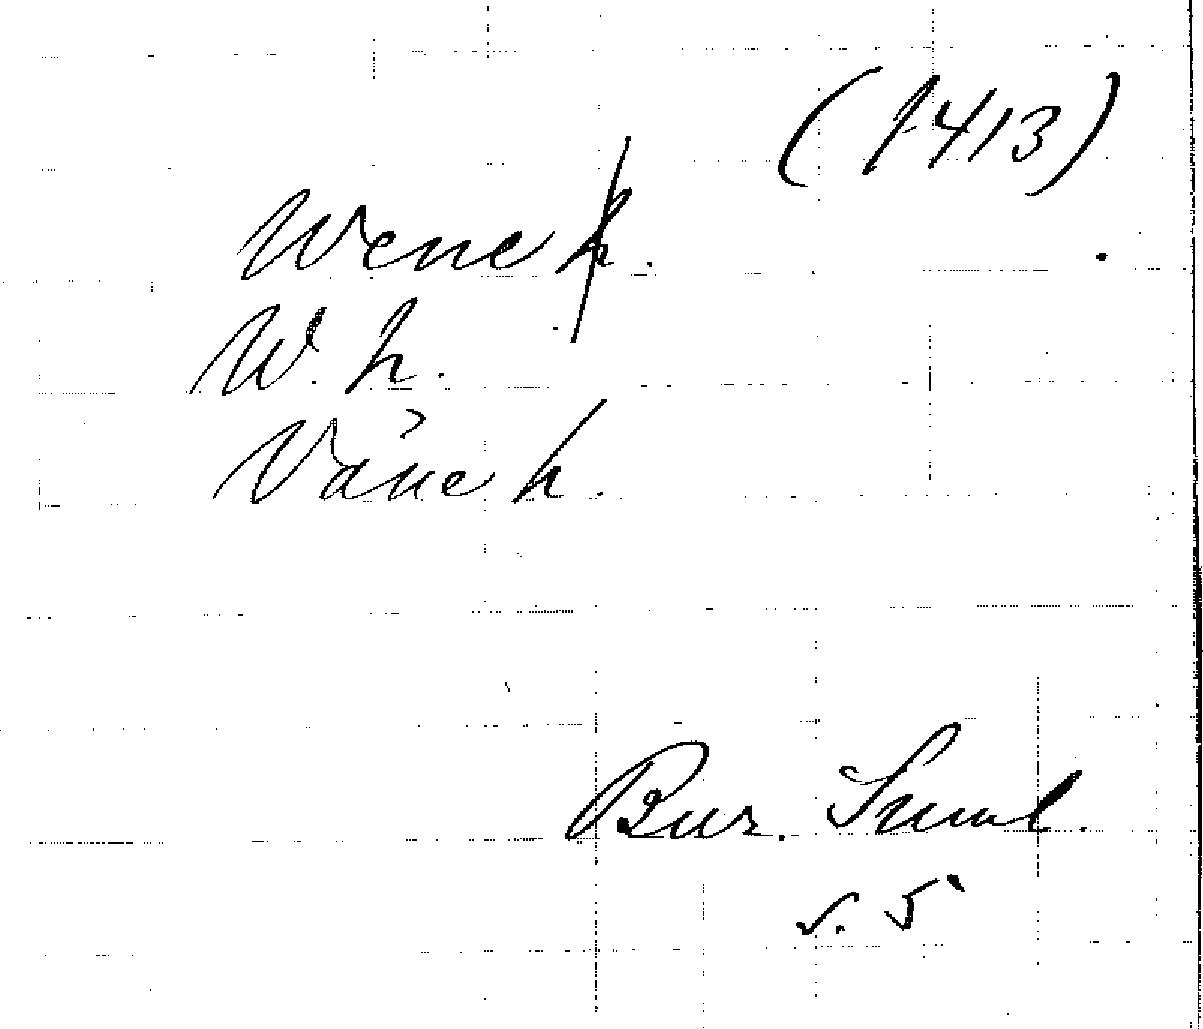 (1413)
Wene h.
W. h.
Våne h.
Bur. Saml.
s. 5